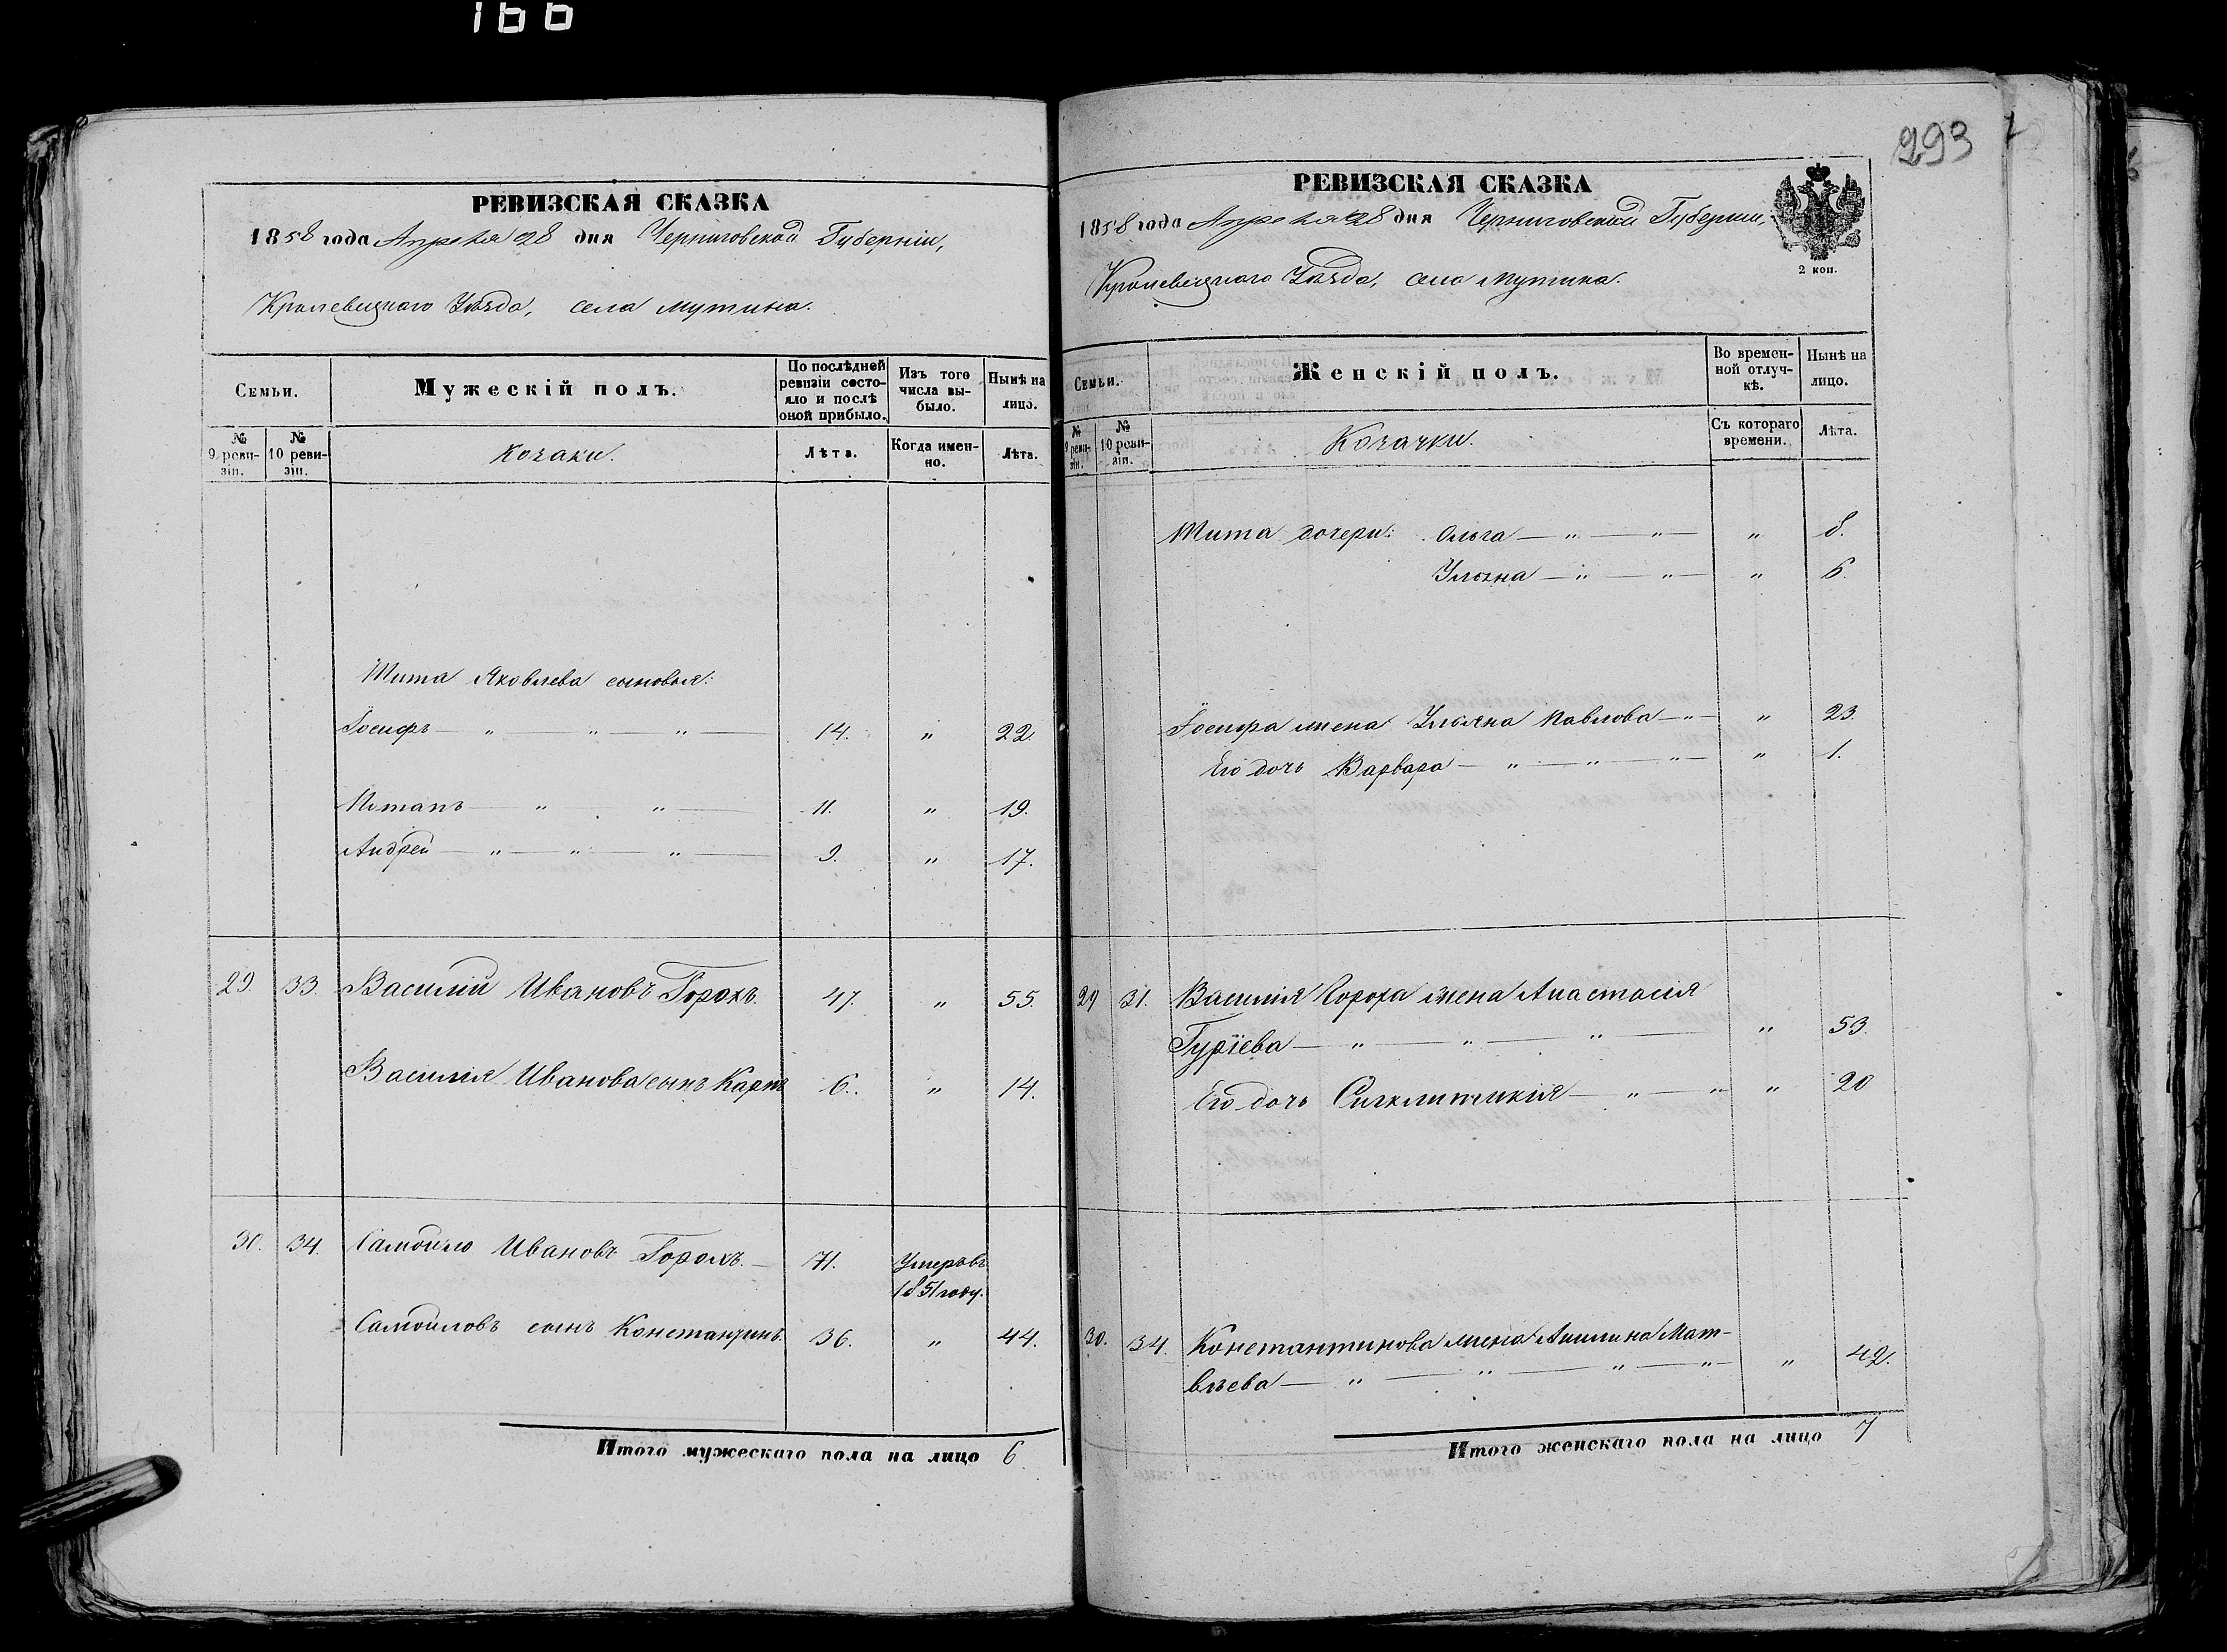 166
293
РЕВИЗСКАЯ СКАЗКА
1858 года Апреля 28 дня Черниговской Губерніи,
Кролевецкаго Уѣзда, села Мутина.
Семьи.
Мужескій полъ.
По послѣдней ревизіи состояло и послѣ оной прибыло.
Изъ того числа выбыло.
Нынѣ на лицо.
№ 9 ревизіи.
№ 10 ревизіи.
Козаки.
Лѣта.
Когда именно.
Лѣта.
Тита Яковлева сыновья:
Іосифъ — „ — „ — „ — 14. „ 22.
Потапъ — „ — „ — 11. „ 19.
Андрей — „ — „ — „ — 9. „ 17.
29. 33. Василій Ивановъ Горохъ. 47. „ 55.
Василія Иванова сынъ Карпъ 6. „ 14.
30. 34. Самойло Ивановъ Горохъ. — 71. Умеръ въ
1851 году.
Самойловъ сынъ Константинъ. 36. „ 44.
Итого мужескаго пола на лицо 6
РЕВИЗСКАЯ СКАЗКА
1858 года Апреля 28 дня Черниговской Губерніи,
2 коп.
Кролевецкаго Уѣзда, села Мутина.
Семьи.
Женскій полъ.
Во временной отлучкѣ.
Нынѣ на лицо.
№ 9 ревизіи.
№ 10 ревизіи.
Козачки.
Съ котораго времени.
Лѣта.
Тита дочери: Ольга — „ — „ — „ 8.
Ульяна — „ — „ — „ 6.
Іосифа жена Ульяна Павлова — „ — „ 23.
Его дочь Варвара — „ — „ — „ — „ 1.
29 31. Василія Гороха жена Анастасія
Гуріева — „ — „ — „ — „ 53.
Его дочь Сигклитикія — „ — „ „ 20
30. 34. Константинова жена Акилина Мат-
вѣева — „ — „ — „ — „ — „ 42.
Итого женскаго пола на лицо 7